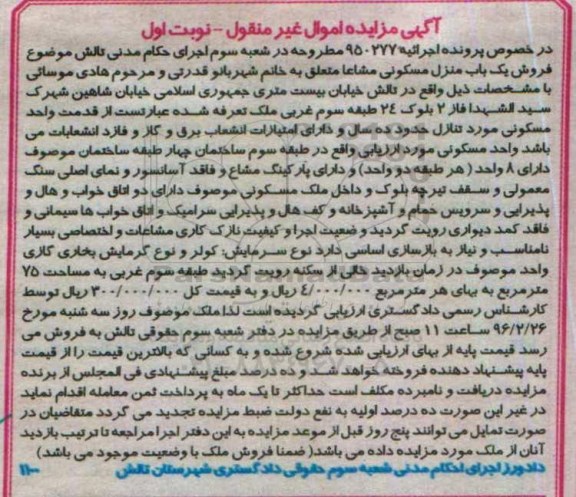 آگهی مزایده اموال غیر منقول - نوبت اول
در خصوص پرونده اجرائیه ۹۵۰۲۷۷ مطروحه در شعبه سوم اجرای حکام مدنی تالش موضوع
فروش یک باب منزل مسکونی مشاعا متعلق به خانم شهربانو قدرتی و مرحوم هادی موسائی
با مشخصات ذیل واقع در تالش خیابان بیست متری جمهوری اسلامی خیابان شاهین شهرک
سید الشهدا فاز ۲ بلوک ۲۴ طبقه سوم غربی ملک تعرفه شده عبارتست از قدمت واحد
مسکونی مورد تنازل حدود ده سال و دارای امتیازات انشعاب برق و گاز و فاقد انشعابات می
باشد واحد مسکونی مورد ارزیابی واقع در طبقه سوم ساختمان چهار طبقه ساختمان موصوف
دارای ۸ واحد ( هر طبقه دو واحد) و دارای پارکینگ مشاع و فاقد آسانسور و نمای اصلی سنگ
معمولی و سقف تیرچه بلوک و داخل ملک مسکونی موصوف دارای دو اتاق خواب و هال و
پذیرایی و سرویس حمام و آشپزخانه و کف هال و پذیرایی سرامیک و اتاق خواب ها سیمانی و
فاقد کمد دیواری رویت گردید و ضعیت اجرا و کیفیت نازک کاری مشاعات و اختصاصی بسیار
نامناسب و نیاز به بازسازی اساسی دارد نوع سرمایش: کولر و نوع گرمایش بخاری گازی
واحد موصوف در زمان بازدید خالی از سکنه رویت گردید طبقه سوم غربی به مساحت ۷۵
متر مربع به بهای هر متر مربع ۴/۰۰۰/۰۰۰ ریال و به قیمت کل ۳۰۰/۰۰۰/۰۰۰ ریال توسط
کارشناس رسمی دادگستری ارزیابی گردیده است لذا ملک موصوف روز سه شنبه مورخ
۹۶/۲/۲۶ ساعت ۱۱ صبح از طریق مزایده در دفتر شعبه سوم حقوقی تالش به فروش می
رسد قیمت پایه از بهای ارزیابی شده شروع شده و به کسانی که بالاترین قیمت را از قیمت
پایه پیشنهاد دهنده فروخته خواهد شد و ده درصد مبلغ پیشنهادی فی المجلس از برنده
مزایده دریافت و نامبرده مکلف است حداکثر تا یک ماه به پرداخت ثمن معامله اقدام نماید
در غیر این صورت ده درصد اولیه به نفع دولت ضبط مزایده تجدید می گردد متقاضیان در
صورت تمایل می توانند پنج روز قبل از موعد مزایده به این دفتر اجرا مراجعه تا ترتیب بازدید
آنان از ملک مورد مزایده داده می باشد( ضمنا فروش ملک با وضعیت موجود می باشد)
دادورز اجرای احکام مدنی شعبه سوم حقوقی دادگستری شهرستان تالش ۱۱۰۰